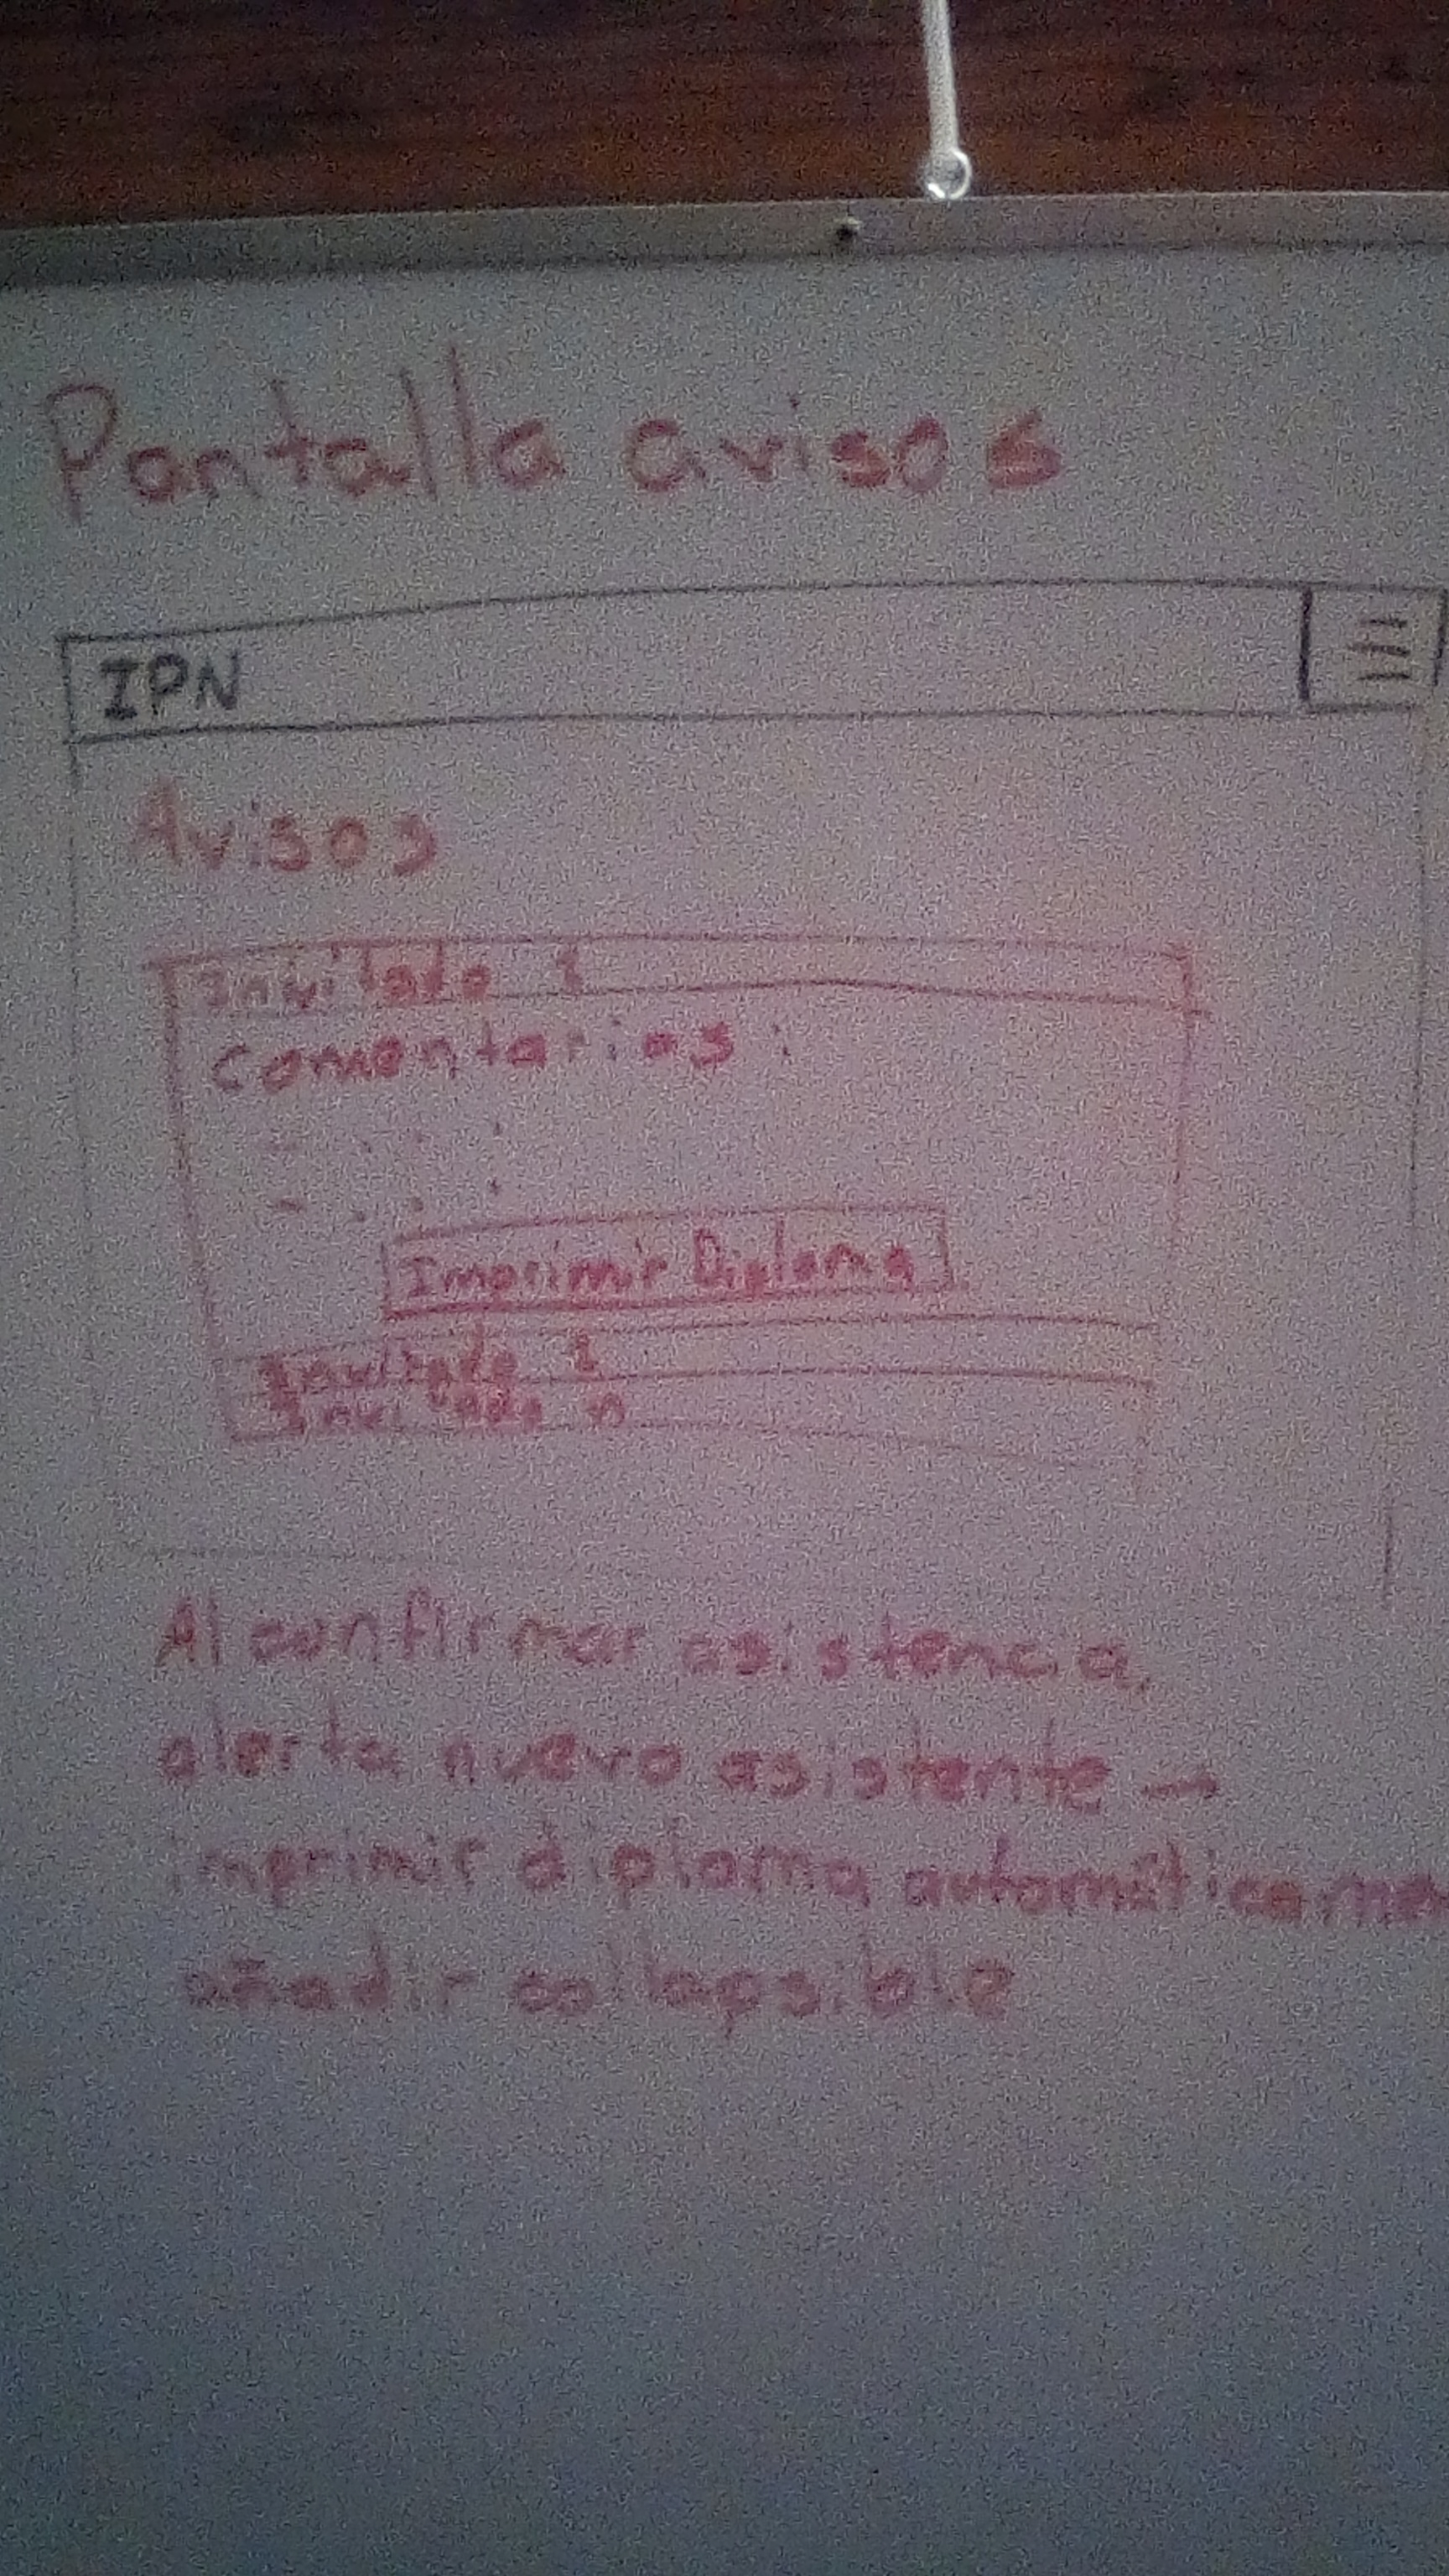 Pantalla avisos
IPN
Avisos
Invitado 1
Comentarios:
Imprimir Diploma
Invitado 2
Invitado n
Al confirmar asistencia,
alerta nuevo asistente →
imprimir diploma automáticame
añadir collapsible